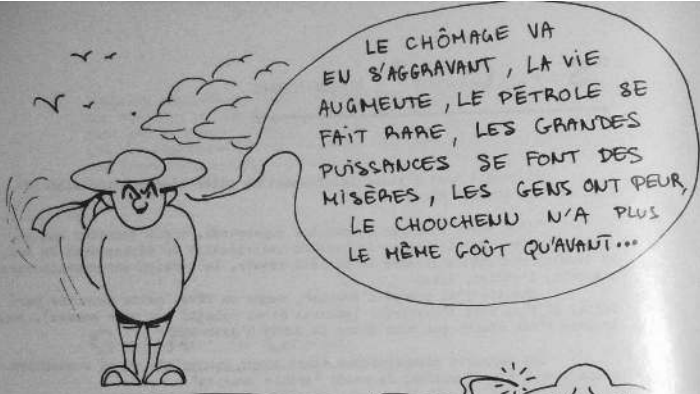 LE CHÔMAGE VA
EN S'AGGRAVANT, LA VIE
AUGMENTE, LE PÉTROLE SE
FAIT RARE, LES GRANDES
PUISSANCES SE FONT DES
MISÈRES, LES GENS ONT PEUR,
LE CHOUCHENN N'A PLUS
LE MÊME GOÛT QU'AVANT...